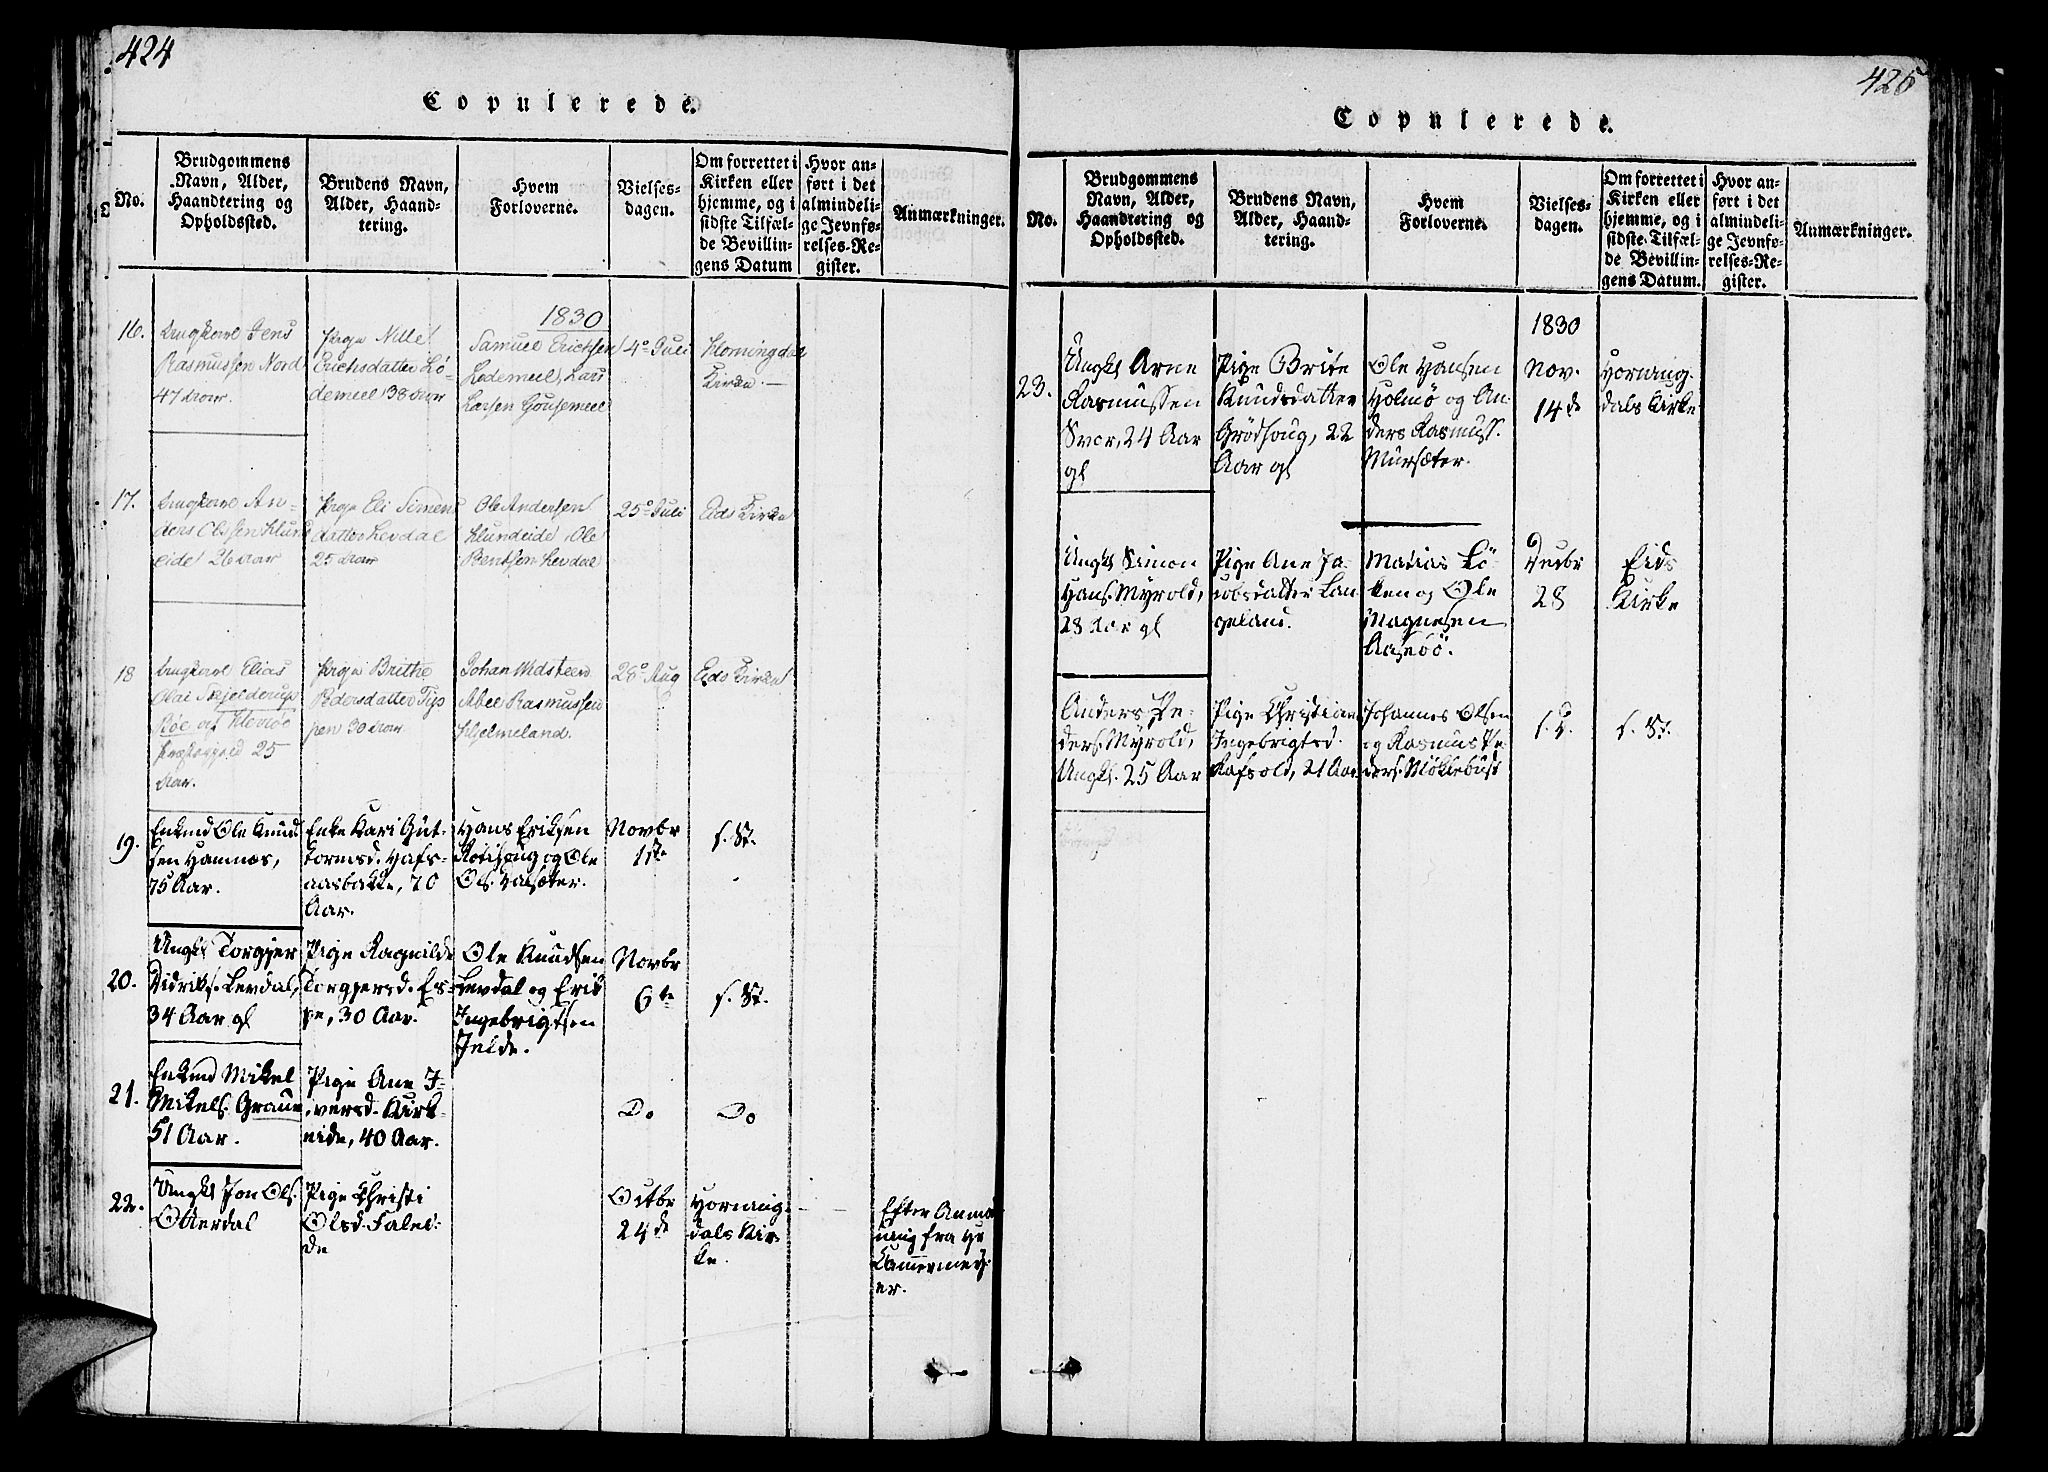 424
Copulerede.
No.
Brudgommens
Navn, Alder,
Haandtering og
Opholdssted.
Brudens Navn,
Alder, Haand-
tering.
Hvem
Forloverne.
Vielses-
dagen.
Om forrettet i
Kirken eller
hjemme, og i
sidste Tilfæl-
de Bevillin-
gens Datum
Hvor an-
ført i det
almindeli-
ge Jevnfø-
relses-Re-
gister.
Anmærkninger.
1830
16.
Ungkarl Jens
Rasmussen Nord
47 Aar.
Pige Nille
Erichsdatter Lø-
demeel 38 Aar
Samuel Erichsen
Lødemeel, Lars
Larsen Gousemeel
4de Juli
Horningdal
Kirke. —
17.
Ungkarl An-
ders Olssen Hund
eide 26 Aar
Pige Eli Simens
datter Levdal
25 Aar
Ole Andersen
Hundeide, Ole
Bentsen Levdal
25de Juli
Eds Kirke
18
Ungkarl Elias
Olai Skjelderup
Røe
Præstegjeld 25
Aar.
Pige Brithe
Pedersdatter
30 Aar
Johan Widsteen
Abel Rasmussen
Hjelmeland.
Aug
Eds Kirke
19.
Enkmd Ole Knud
sen Hamnes,
75 Aar.
Enke Kari Gut-
tormsd. Hafs-
aasbakke, 70
Aar.
Hans Eriksen
og Ole
Ols. Halsæter.
Novbr
1ste
s. St.
20.
Ungkl Torgjer
Didriks. Levdal,
34 Aar gl
Pige Ragnilde
Torgjersd. Es-
pe, 30 Aar.
Ole Knudsen
Levdal og Erik
Ingebrigtsen
Jelde.
Novbr
6te
s. St.
21.
Enkmd Mikel
Mikels. Graue
51 Aar.
Pige Ane I-
versd. Kirk-
eide, 40 Aar.
Do
Do
22.
Ungkl Jon Ols.
Otterdal
Pige Christi
Olsd. Falei-
de
Octbr
24de
Hornings-
dals Kir-
ke.
Efter Anmel
ning fra Hr
er.
425
Copulerede.
No.
Brudgommens
Navn, Alder,
Haandtering og
Opholdssted.
Brudens Navn,
Alder, Haand-
tering.
Hvem
Forloverne.
Vielses-
dagen.
Om forrettet i
Kirken eller
hjemme, og i
sidste Tilfæl-
de Bevillin-
gens Datum.
Hvor an-
ført i det
almindeli-
ge Jevnfø-
relses-Re-
gister.
Anmærkninger.
1830
23.
Ungkl Arne
Rasmussen
Svor, 24 Aar
gl
Pige Brite
Knudsdatter
Grodhoug, 22
Aar gl
Ole Hansen
Holmø og An-
ders Rasmuss.
Mursæter.
Nov.
14de
Horning-
dals Kirke
Ungkl Simon
Hans. Myrold,
28 Aar gl
Pige Ane Ja-
cobsdatter Lan-
geland.
Matias Lø-
ken og Ole
Magnesen
Aasnøø.
Decbr
28
Eids
Kirke
Anders Pe-
ders. Myrold,
Ungkl. 25 Aar
Pige Christiane
Ingebrigtsd.
Rafsold, 21 Aar
Johannes Olsen
og Rasmus Pe-
ders. Møklebust
s. D.
s. St.